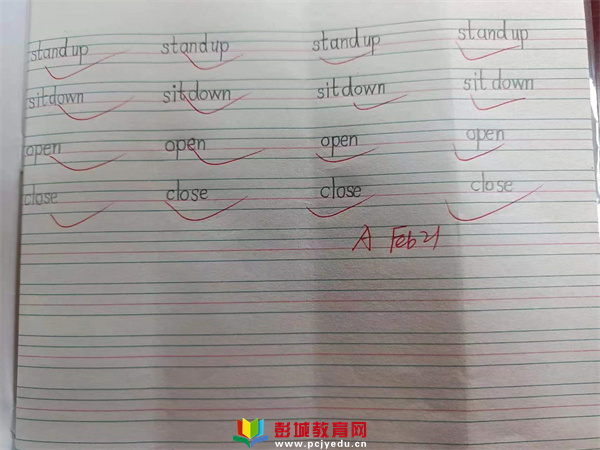 standup standup standup standup
sitdown sitdown sitdown sitdown
open open open open
close close close close
A Feb 21
彭城教育网
www.pcjyedu.cn